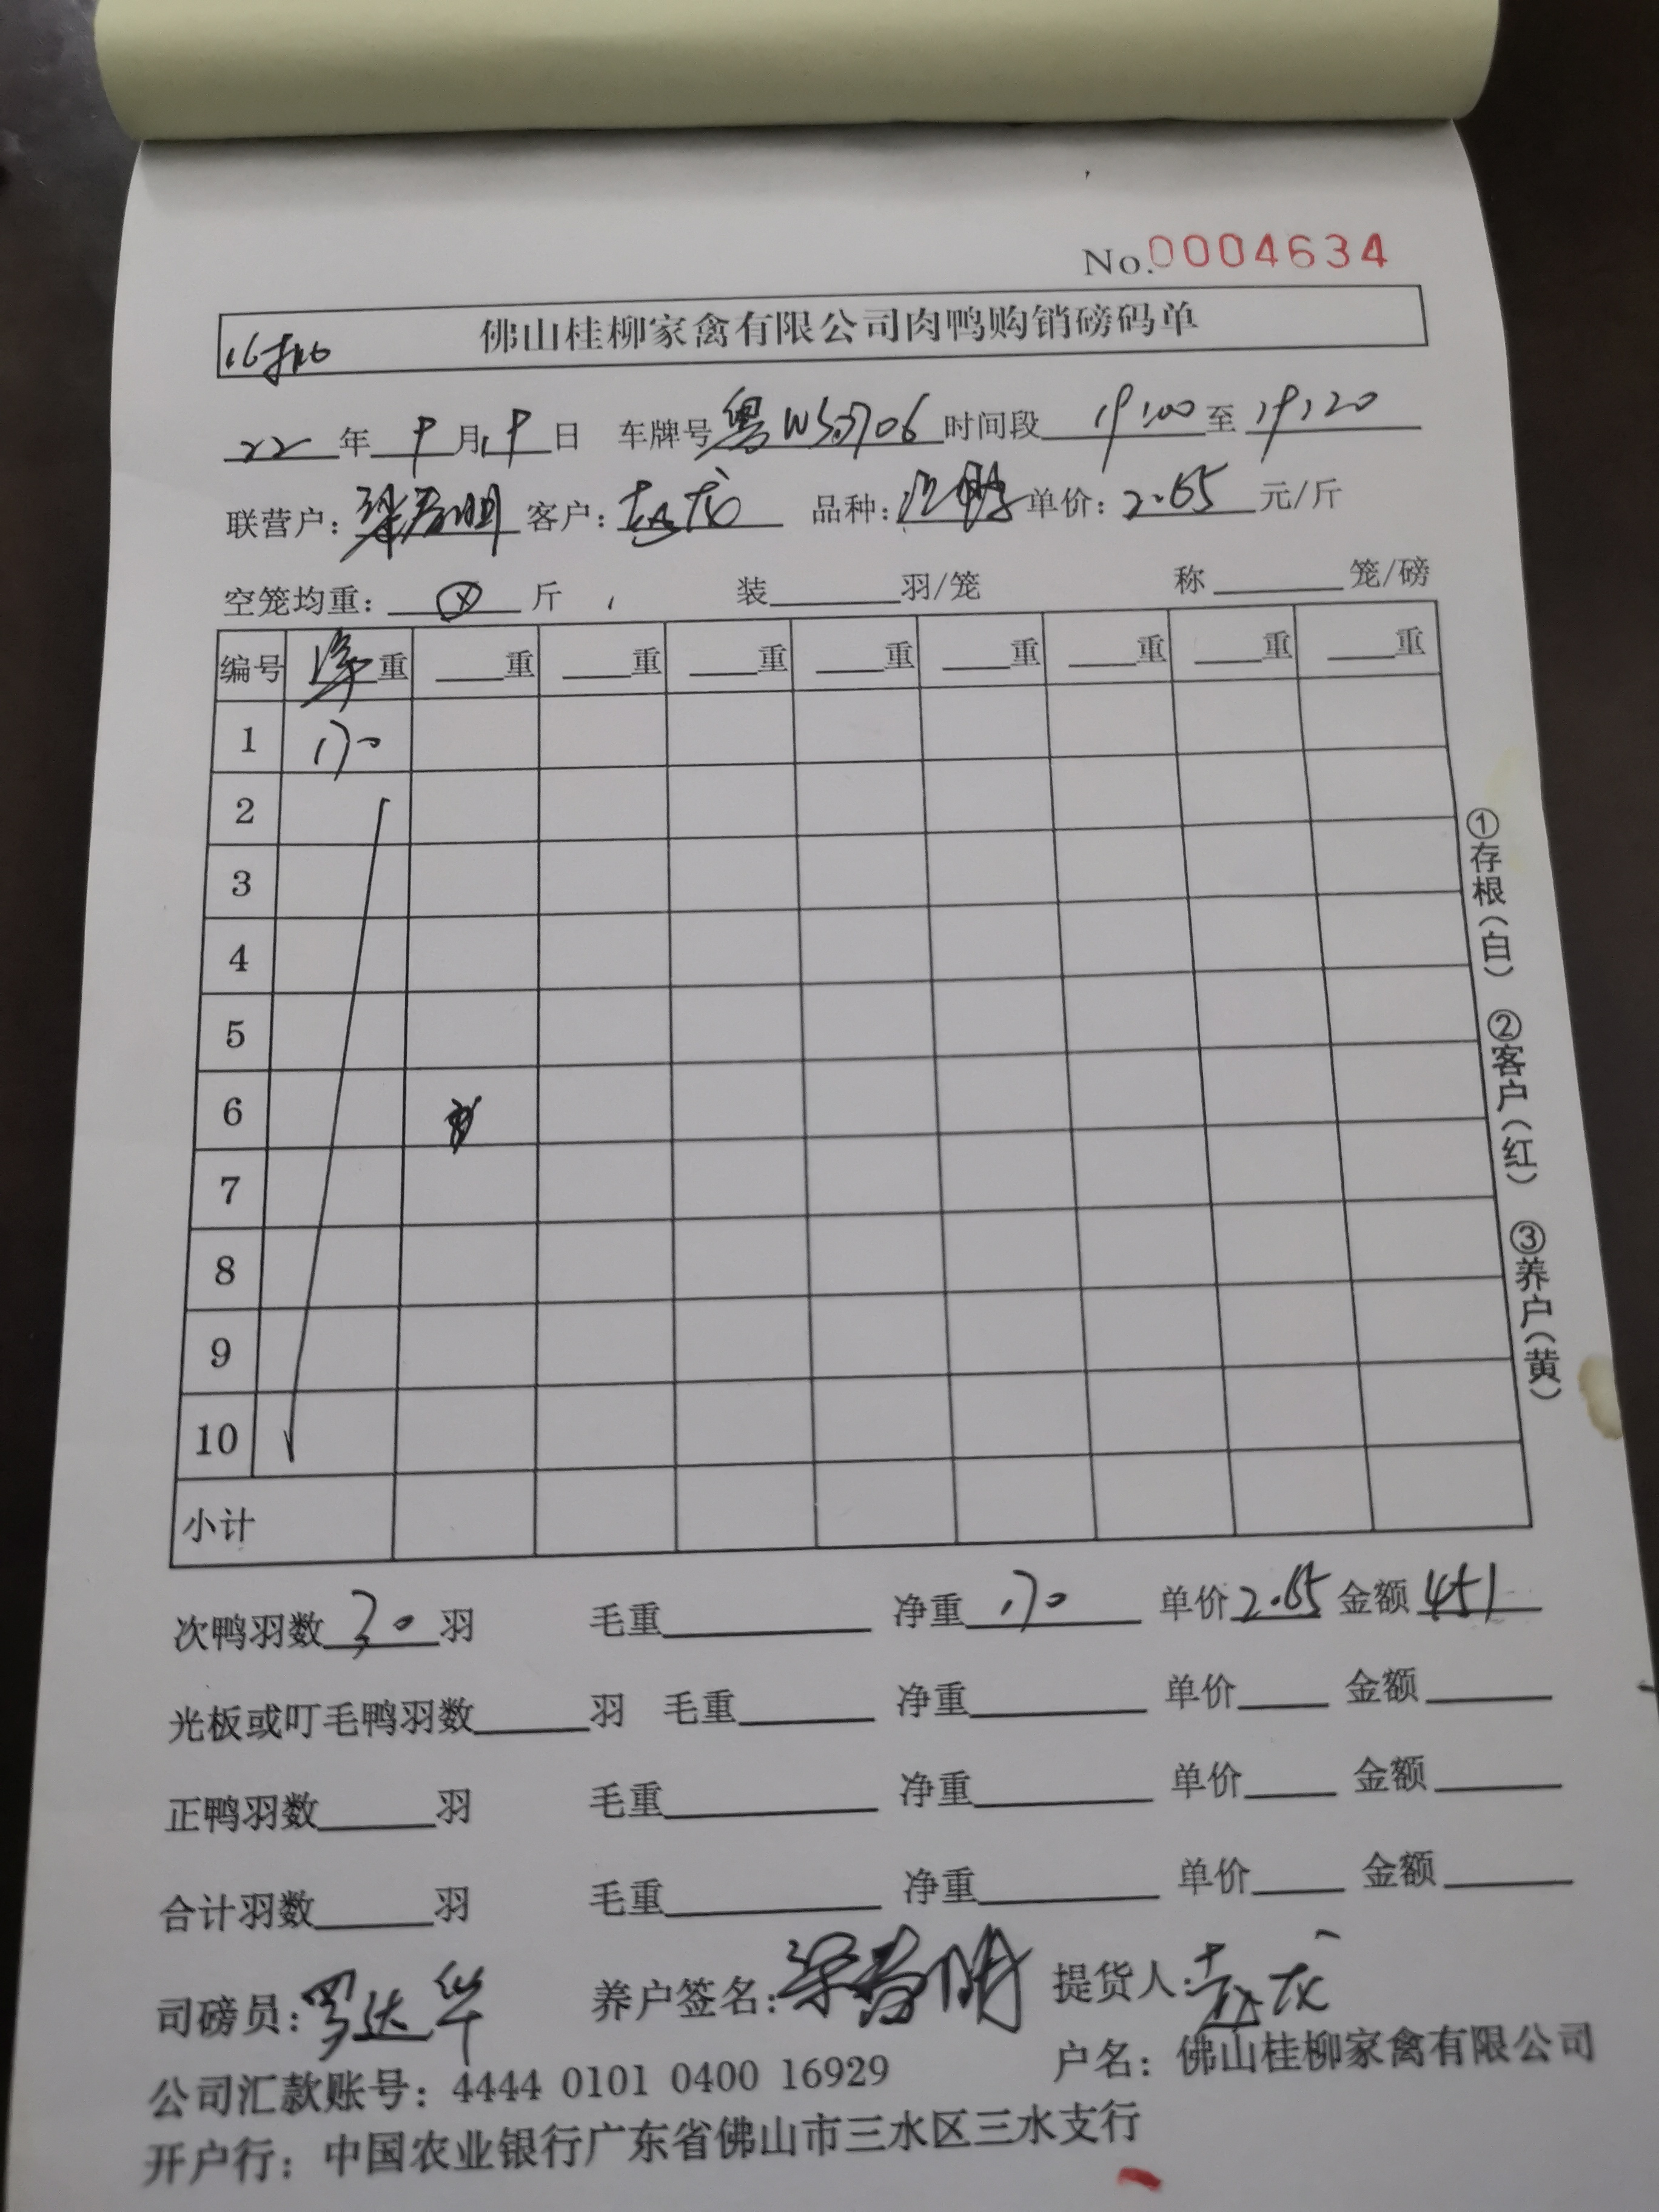 No.0004634
佛山桂柳家禽有限公司肉鸭购销磅码单
22年9月19日 车牌号粤WS3706 时间段19:00至19:20
联营户: 客户: 龙 品种: 鸭 单价:2.65元/斤
空笼均重: 斤 装 羽/笼 称 笼/磅
编号 净重 重 重 重 重 重 重 重 重
1 170
2
3
4
5
6
7
8
9
10
小计
①存根(白) ②客户(红) ③养户(黄)
次鸭羽数30羽 毛重 净重170 单价2.65 金额451
光板或叮毛鸭羽数 羽 毛重 净重 单价 金额
正鸭羽数 羽 毛重 净重 单价 金额
合计羽数 羽 毛重 净重 单价 金额
司磅员:罗达华 养户签名: 明 提货人: 龙
公司汇款账号: 4444 0101 0400 16929 户名: 佛山桂柳家禽有限公司
开户行: 中国农业银行广东省佛山市三水区三水支行